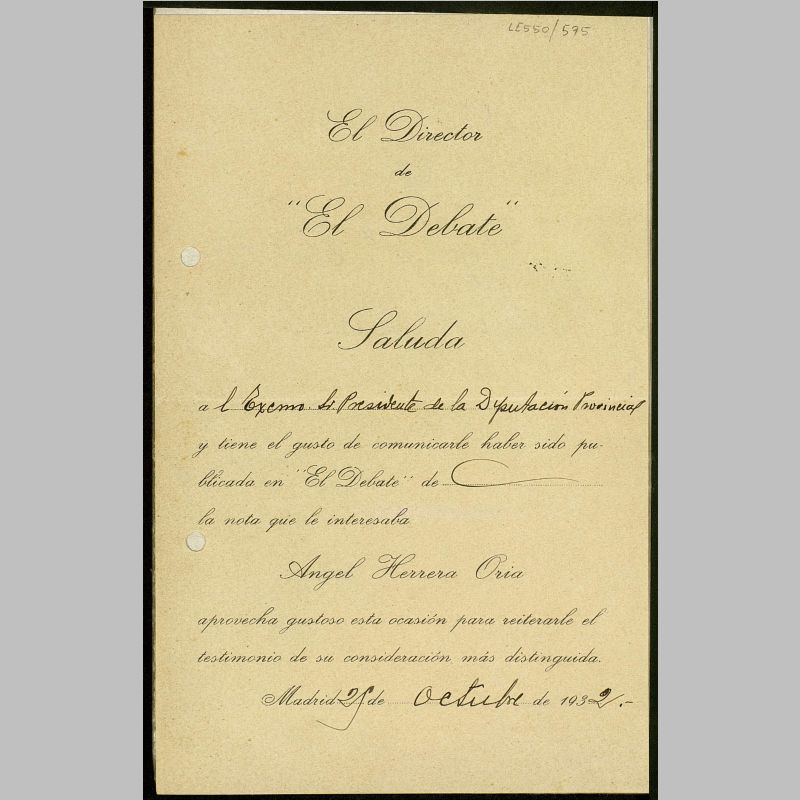 LE550/595
El Director
de
"El Debate"
Saluda
a l Excmo Sr Presidente de la Diputación Provincial
y tiene el gusto de comunicarle haber sido pu-
blicada en "El Debate" de
la nota que le interesaba
Angel Herrera Oria
aprovecha gustoso esta ocasión para reiterarle el
testimonio de su consideración más distinguida.
Madrid 25 de Octubre de 1932.-